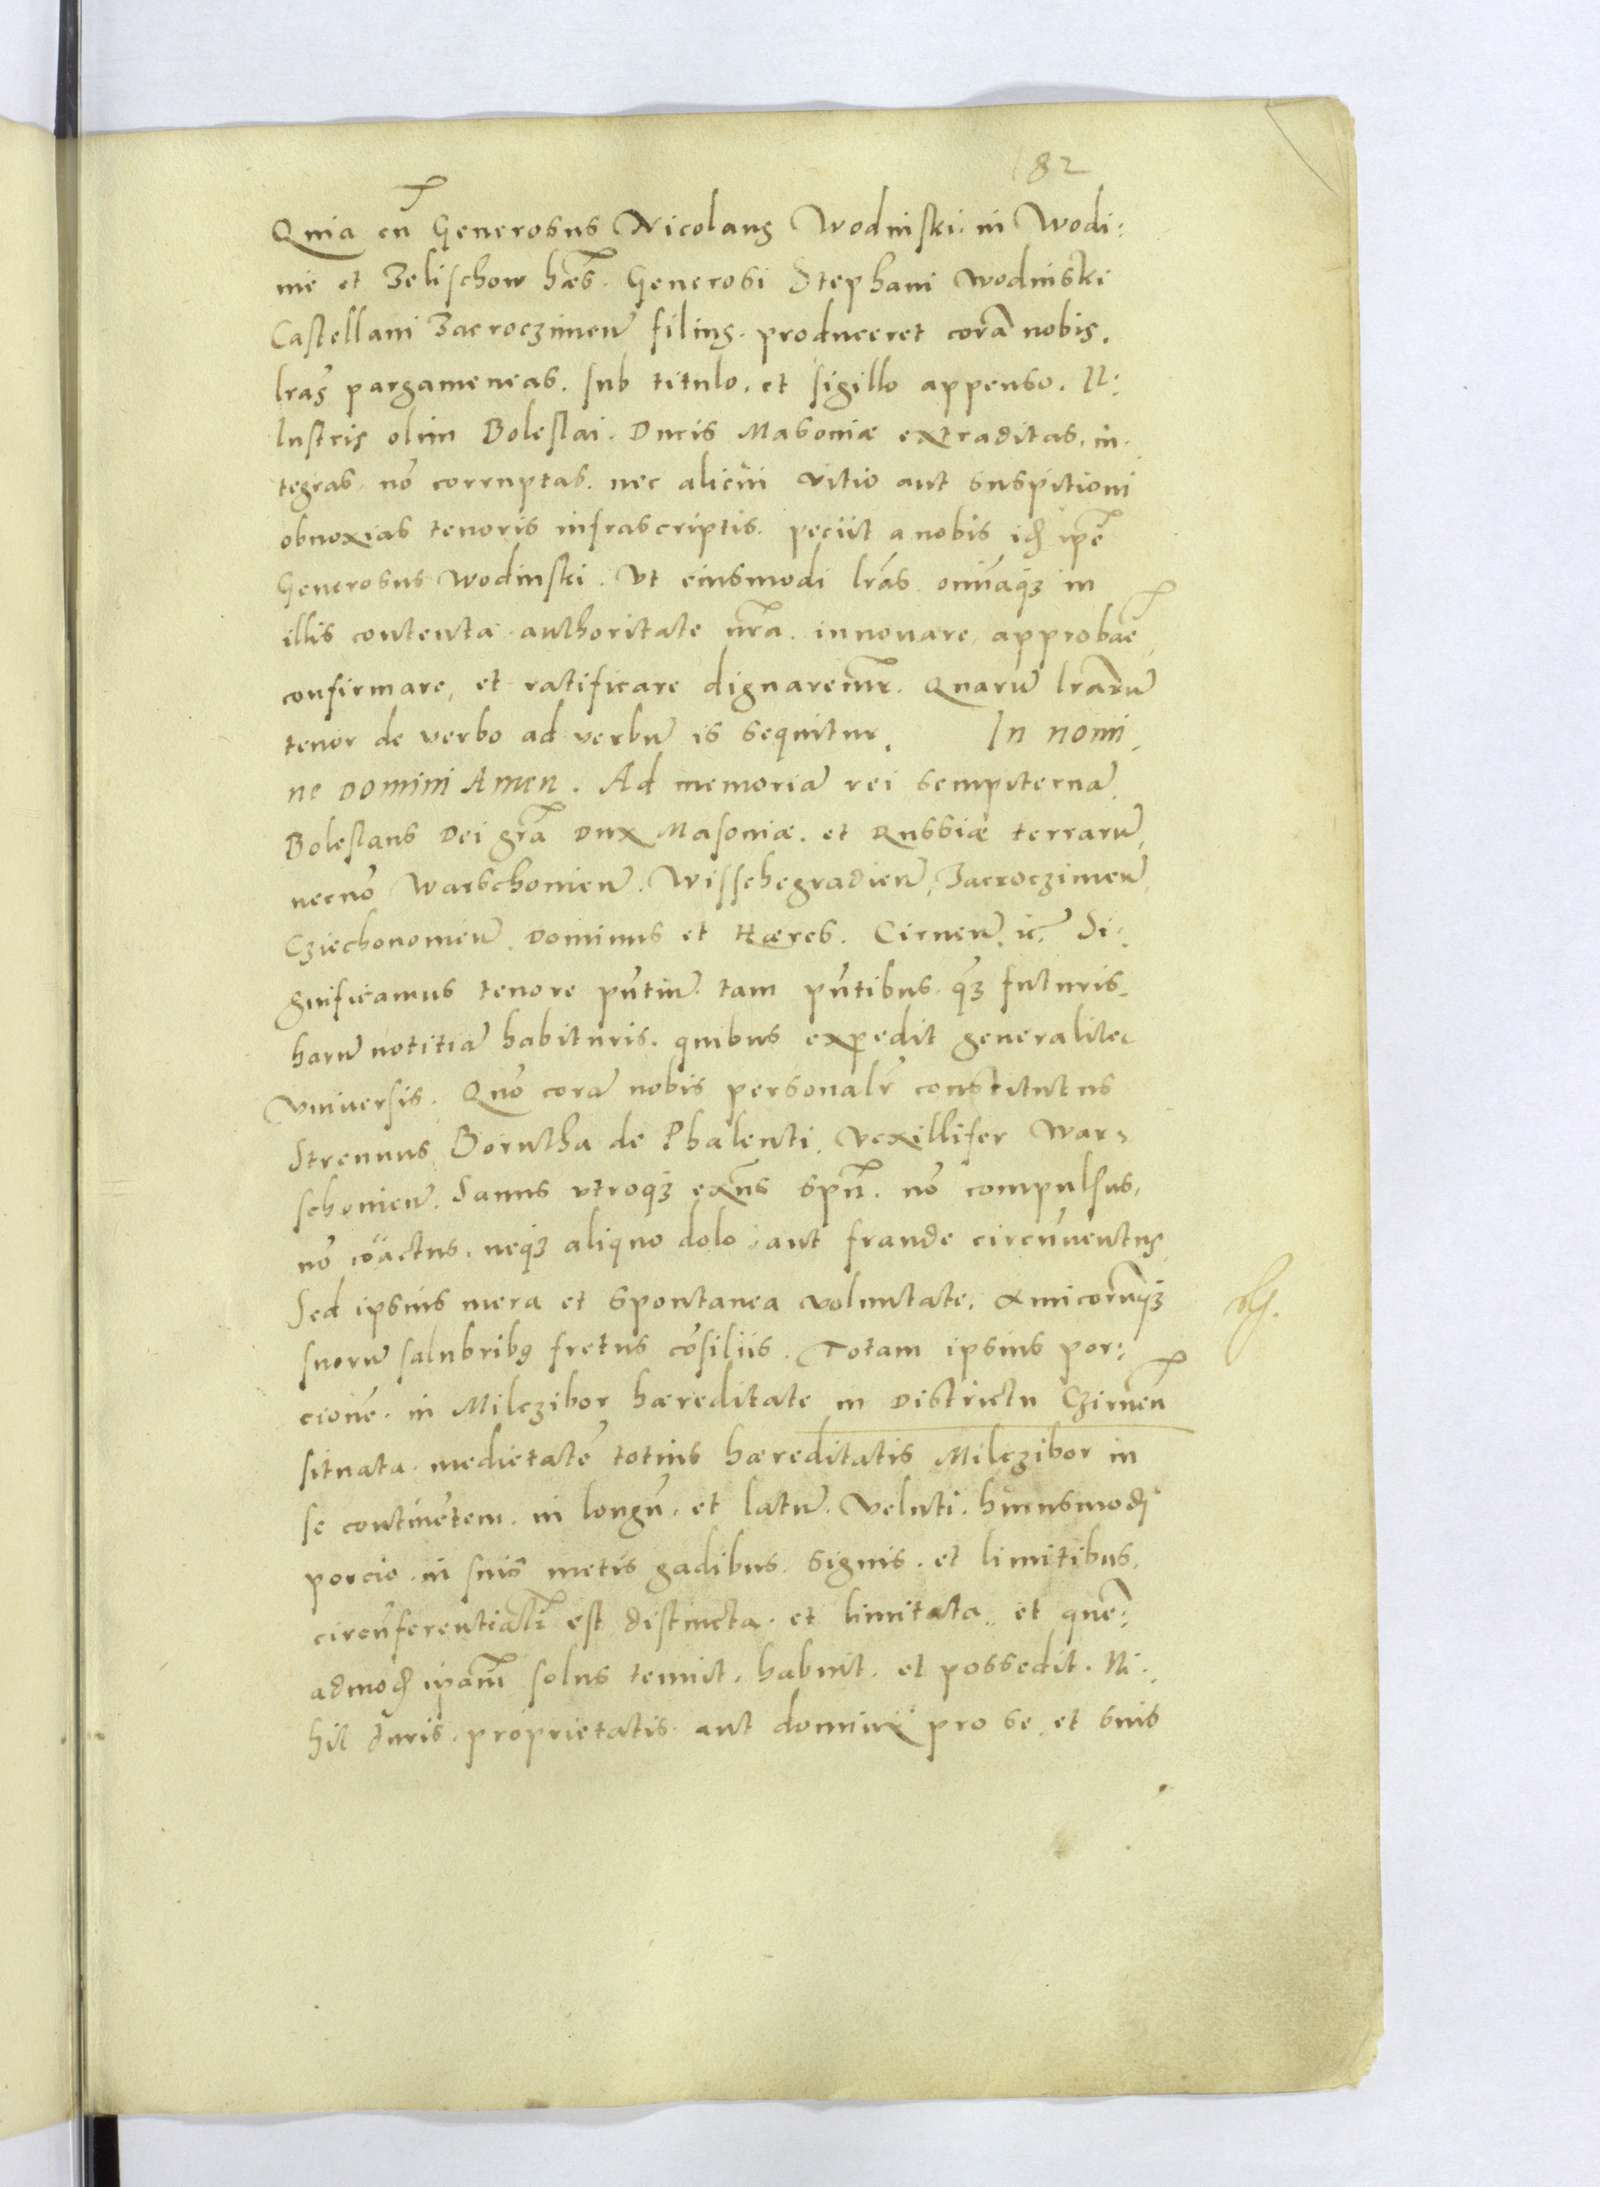 182
Quia cũ Generosus Nicolaus Wodinski in Wodi:
nie et Zelischow hæs. Generosi Stephani Wodinski
Castellani Zacroczimeñ filius. produceret corã nobis.
lr̃as pargameneas. sub titulo. et sigillo appenso. Il:
lustris olim Boleslai. Ducis Masoviæ extraditas. in.
tegras. nõ corruptas. nec alicui vitio aut suspitioni
obnoxias tenoris infrascriptis. peciit a nobis idẽ ip̃e
Generosus Wodinski. Vt eiusmodi lr̃as. omniaq3 in
illis contenta. authoritate nr̃a. innouare, approbar̃e,
confirmare, et ratificare dignaremur. Quarũ lr̃arũ
tenor de verbo ad verbũ is sequitur. In nomi,
ne Domini Amen. Ad memoriã rei sempiternã.
Boleslaus Dei gr̃a Dux Masoviæ. et Russiæ terrarũ,
necnõ Warschovieñ. Wisschegradieñ, Zacroczimeñ,
Cziechonovieñ. Dominus et Hæres. Cirneñ. ꝛc̃. Si:
gnificamus tenore pñtiũ. tam pñtibus. q̃3 futuris.
harũ notitiã habituris. quibus expedit generaliter
vniuersis. Quõ corã nobis personalr̃ constitutus
Strenuus Borutha de Phalenti. Vexillifer War:
schovieñ. Sanus vtroq3 exñs spũ. nõ compulsus,
nõ coactus. neq3 aliquo dolo, aut fraude circũuentus
Sed ipsius mera et spontanea voluntate. Amicorũq3
suorũ salubribus fretus cõsiliis. Totam ipsius por:
cionẽ. in Milczibor hæreditate in Districtu Czirneñ
situata. medietatẽ totius hæreditatis Milczibor in
se continẽtem. in longũ. et latũ. Veluti. huiusmodi
porcio. in suis metis gadibus. signis. et limitibus.
circũferentialr̃ est distincta. et limitata. et quẽ:
admodũ ip̃am solus tenuit. habuit. et possedit. Ni:
hil Juris. proprietatis. aut dominii pro se et suis